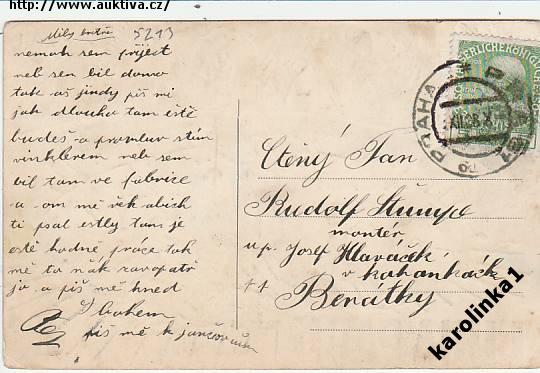 http://www.auktiva.cz/
Milý bratře
5213
nemoh sem přiject
neb sem bil doma
tak aš jindy piš mi
jak dlouho tam eště
budeš a promluv s tím
vinklerem neb sem
bil tam ve fabrice
a on mě řek abich
ti psal estly tam je
eště hodně práce tak
mě to ňák
jo a piš mě hned
S bohem
piš mě k
Ctěný Pan
Rudolf
montér
up. Josef Hlaváček
v
Benátky
PRAHA
XII
karolinka1